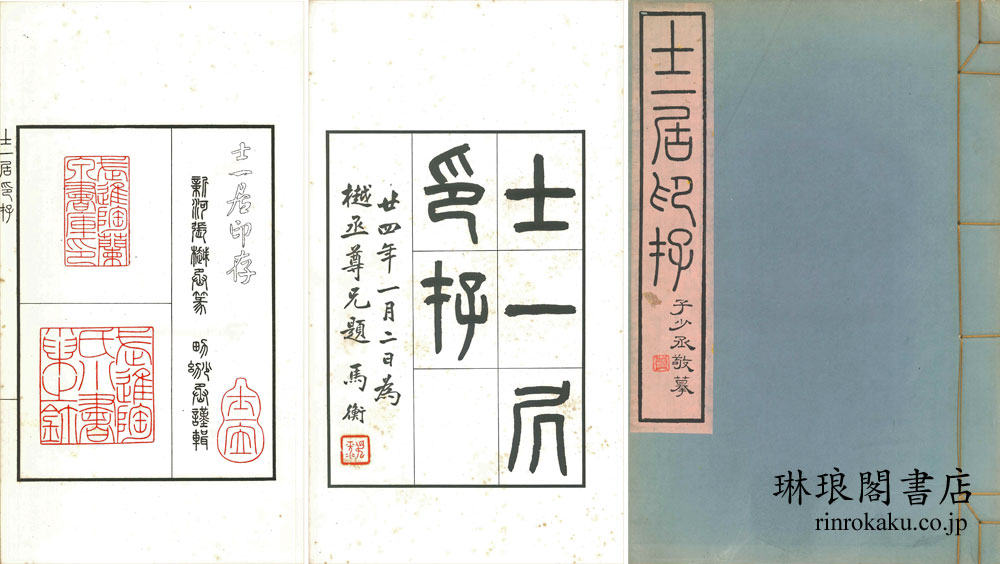 士一居印存
士一居印存
新河張樾丞篆 男幼丞謹輯
士一居
印存
廿四年一月二日為
樾丞尊兄題 馬衡
士一居印存
子少丞敬摹
琳琅閣書店
rinrokaku.co.jp